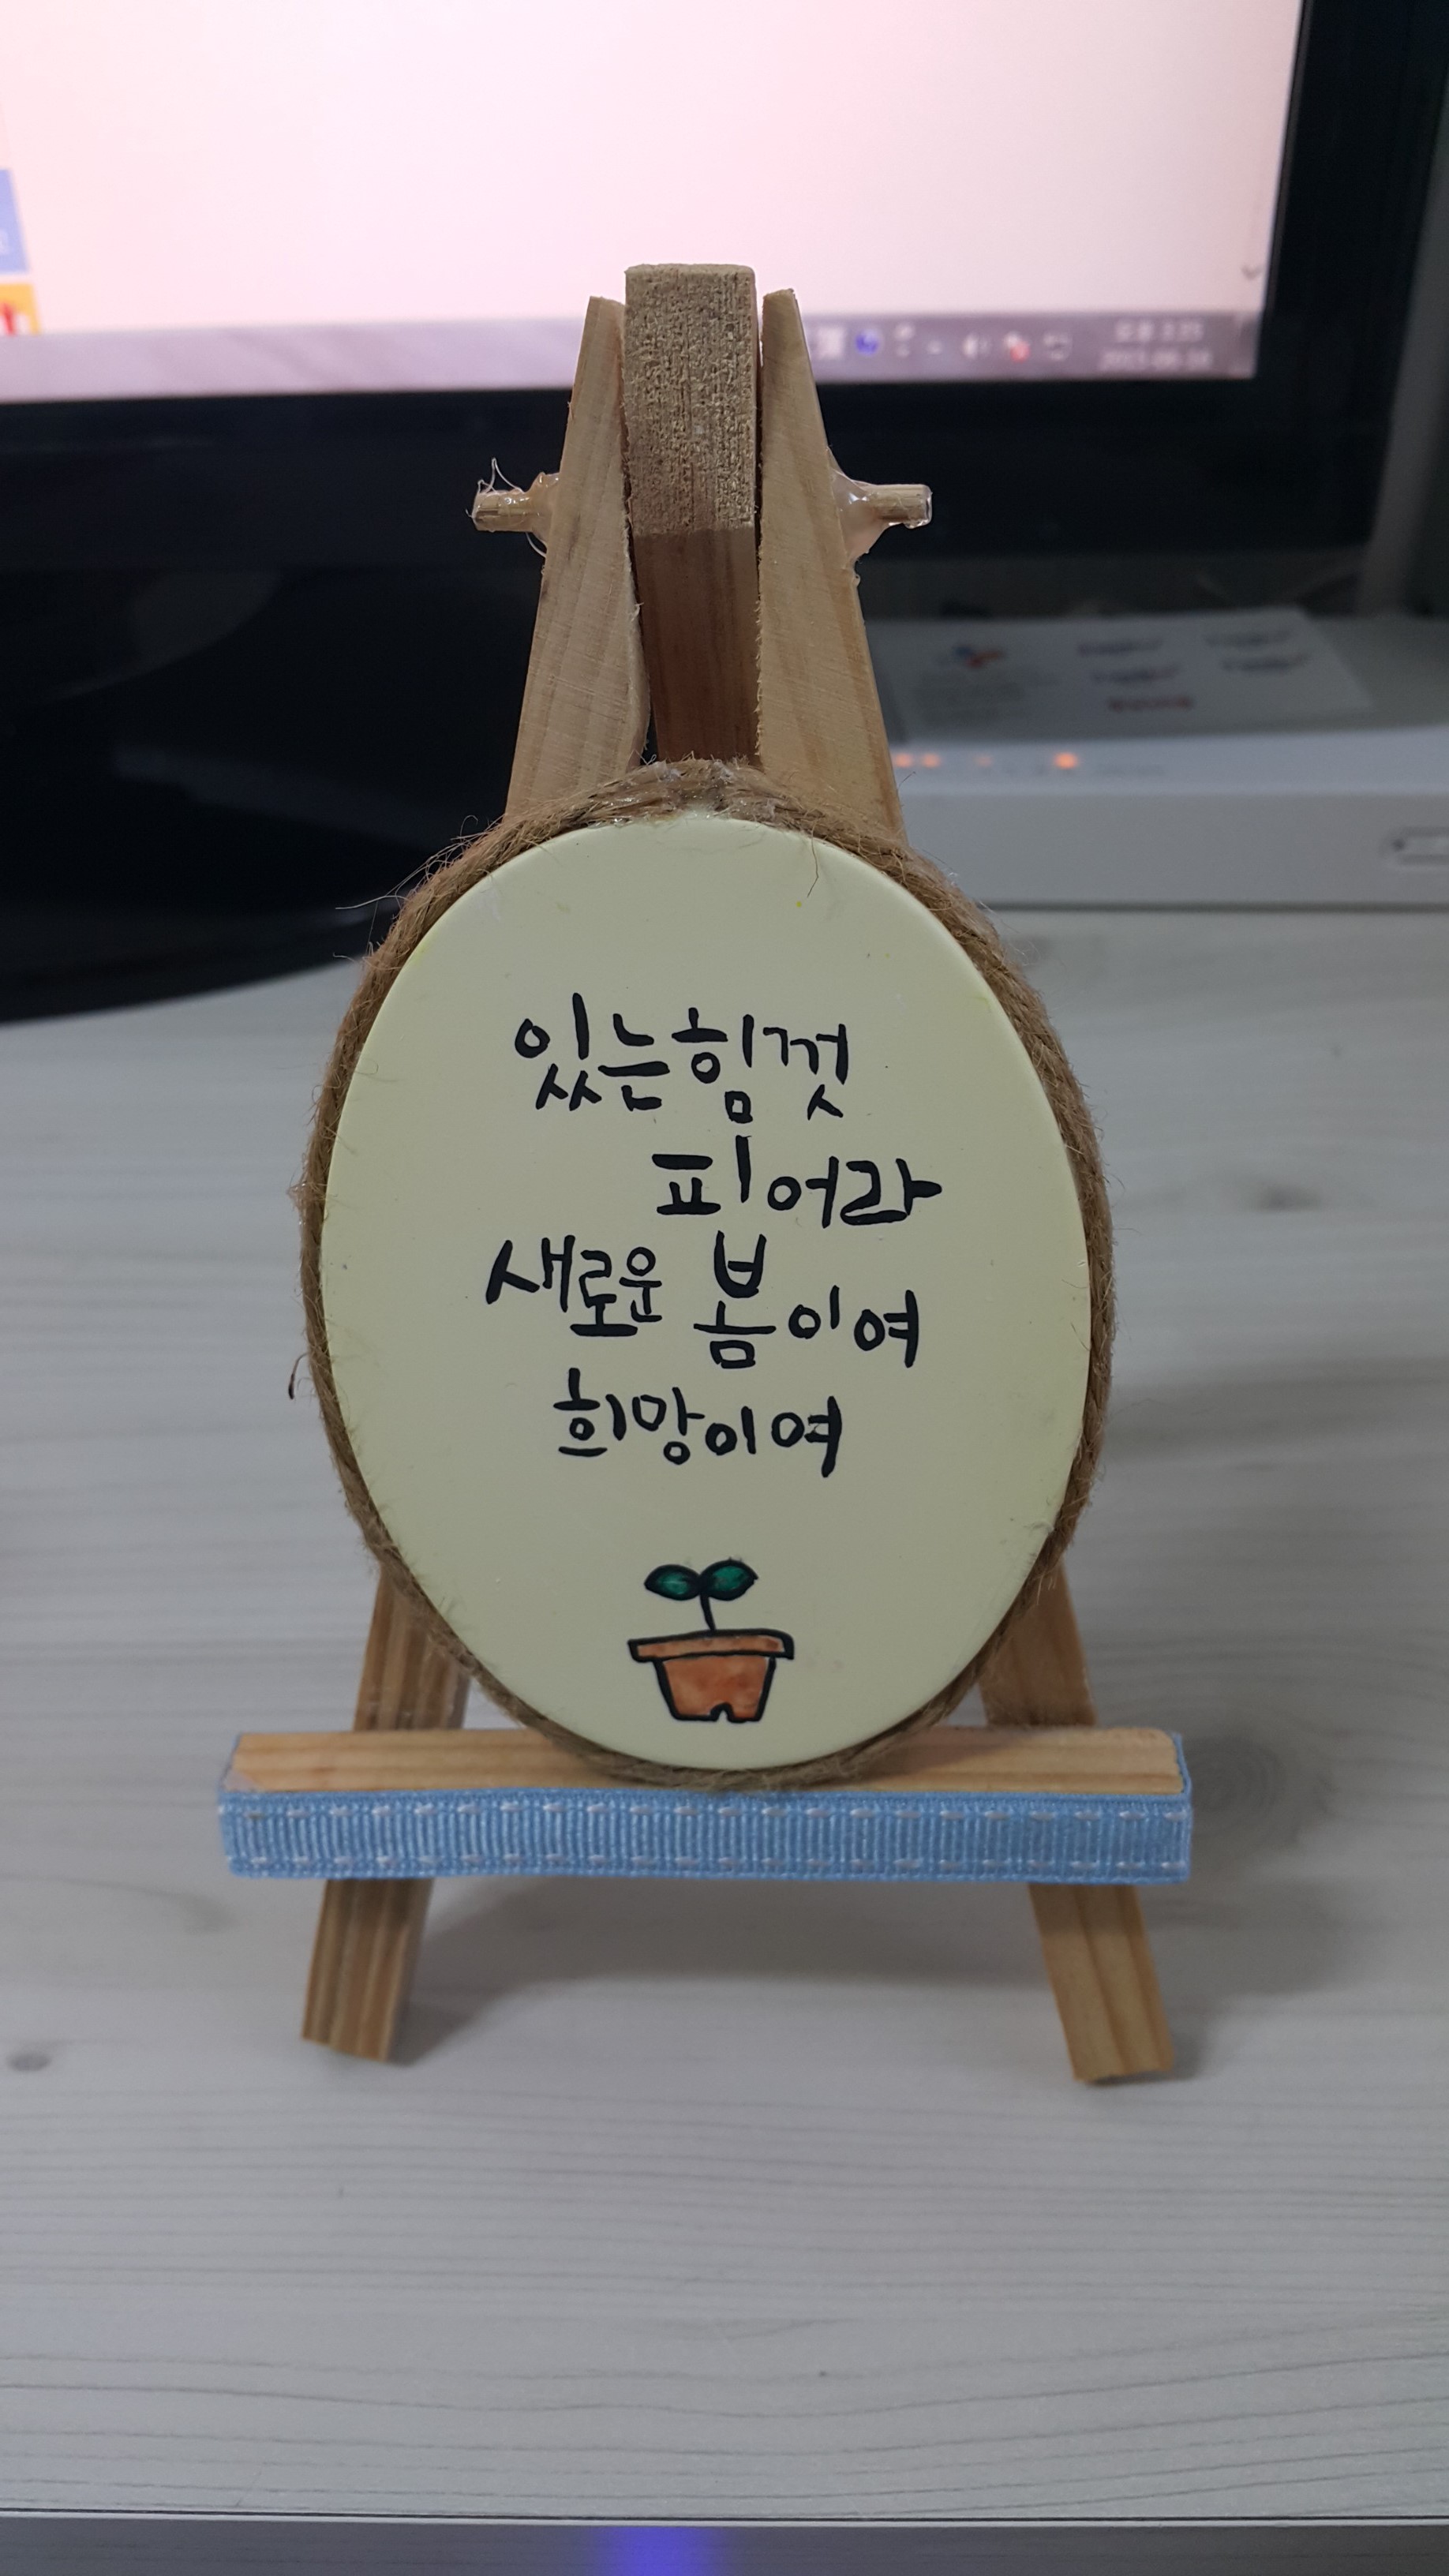 있는힘껏
피어라
새로운 봄이여
희망이여